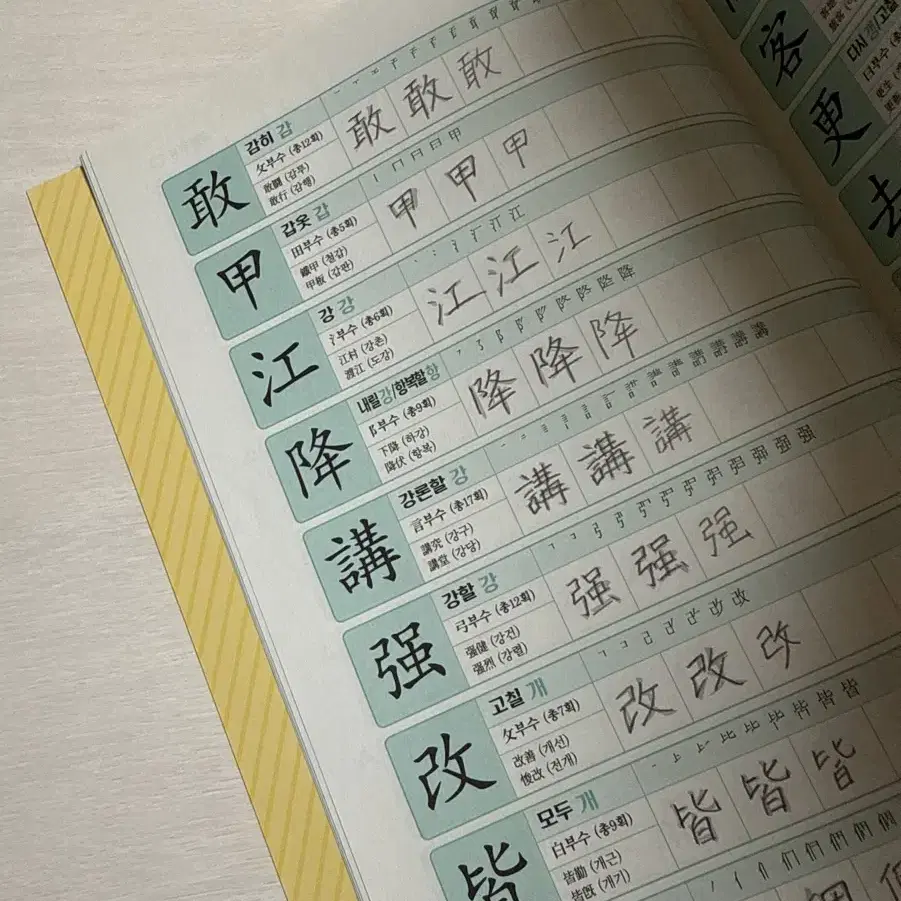 敢
감히 감
攵부수 (총12획)
敢鬪 (감투)
敢行 (감행)
敢 敢 敢
甲
갑옷 갑
田부수 (총5획)
鐵甲 (철갑)
甲板 (갑판)
甲 甲 甲
江
강 강
氵부수 (총6획)
江村 (강촌)
渡江 (도강)
江 江 江
降
내릴 강/항복할 항
阝부수 (총9획)
下降 (하강)
降伏 (항복)
降 降 降
講
강론할 강
言부수 (총17획)
講究 (강구)
講堂 (강당)
講 講 講
强
강할 강
弓부수 (총12획)
强健 (강건)
强烈 (강렬)
强 强 强
改
고칠 개
攵부수 (총7획)
改善 (개선)
悛改 (전개)
改 改 改
皆
모두 개
白부수 (총9획)
皆勤 (개근)
皆旣 (개기)
皆 皆 皆
客
更
다시 갱/고칠
曰부수
更生
去